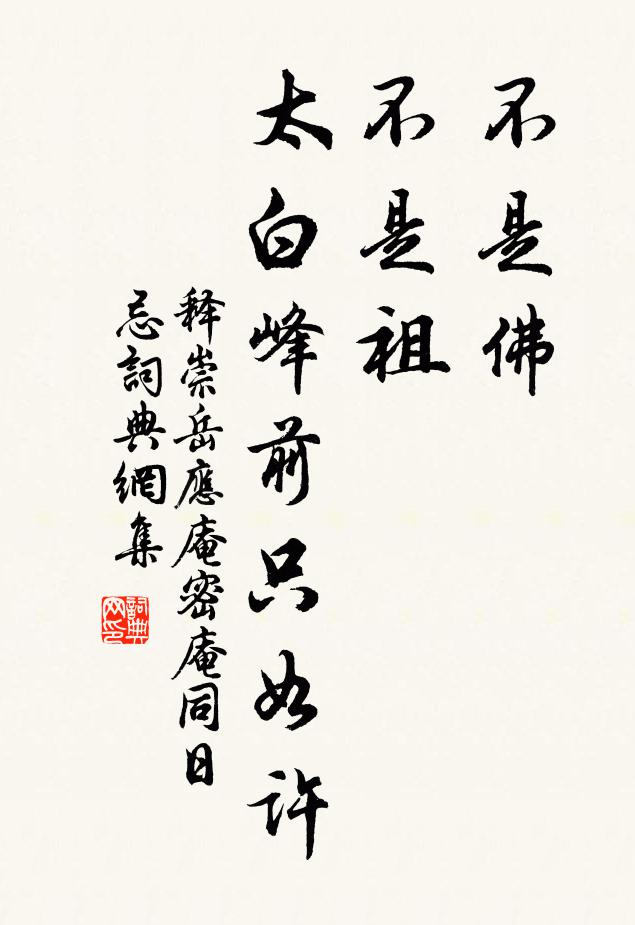 不是佛
不是祖
太白峰前只如许
释崇岳應庵密庵同日
忌詞典網集
詞典网印